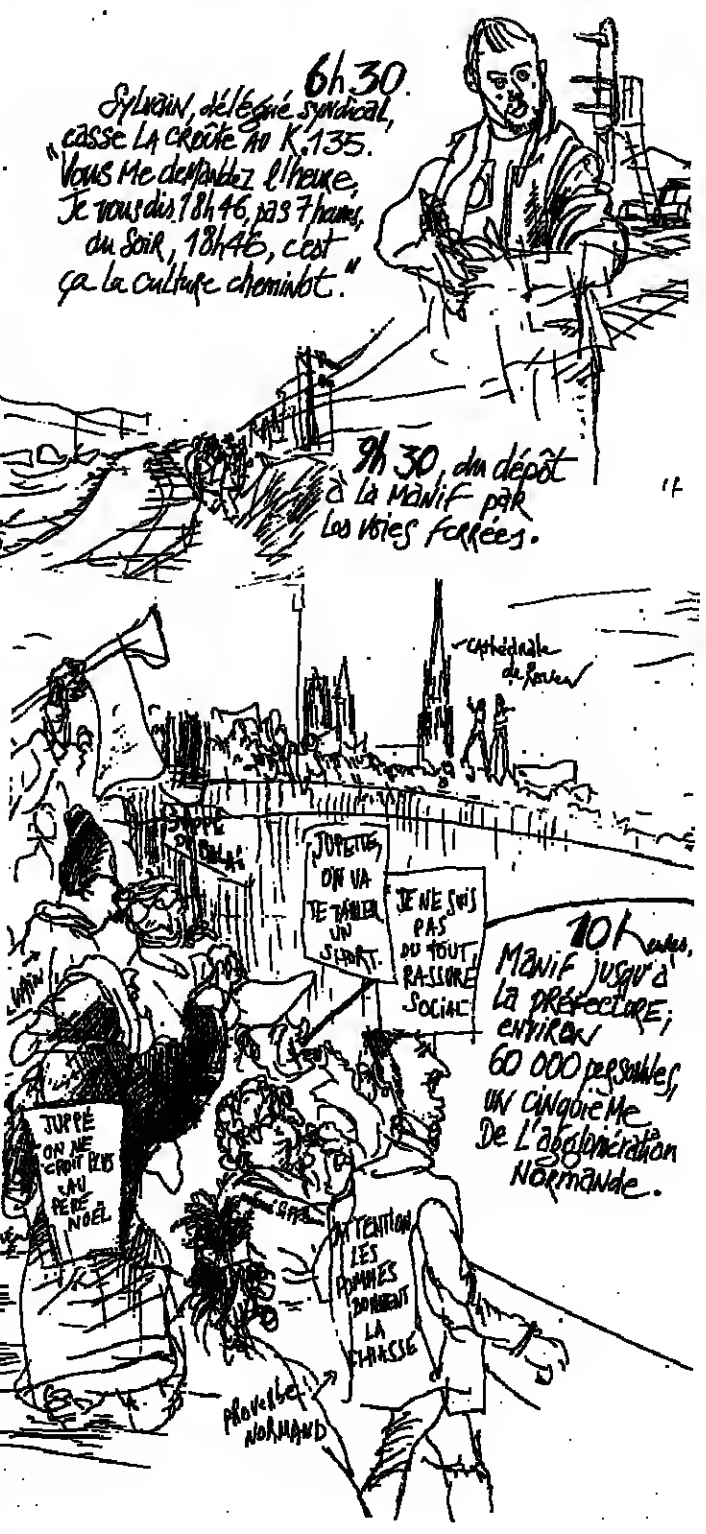 6h30.
Sylvain, délégué syndical,
casse la croûte au K.135.
"Vous me demandez l'heure,
Je vous dis 18h46, pas 7 heures
du soir, 18h46, c'est
ça la culture cheminot."
9h30, du dépôt
à la manif par
les voies ferrées.
Cathédrale
de Rouen
JUPPETTE,
ON VA
TE TAILLER
UN
SHORT.
JE NE SUIS
PAS
DU TOUT
RASSURÉ
SOCIAL
10 heures.
Manif jusqu'à
la préfecture;
environ
60 000 personnes,
un cinquième
de l'agglomération
Normande.
JUPPÉ
ON NE
CROIT PLUS
AU
PÈRE
NOËL
ATTENTION
LES
POMMES
DONNENT
LA
CHIASSE
PROVERBE
NORMAND